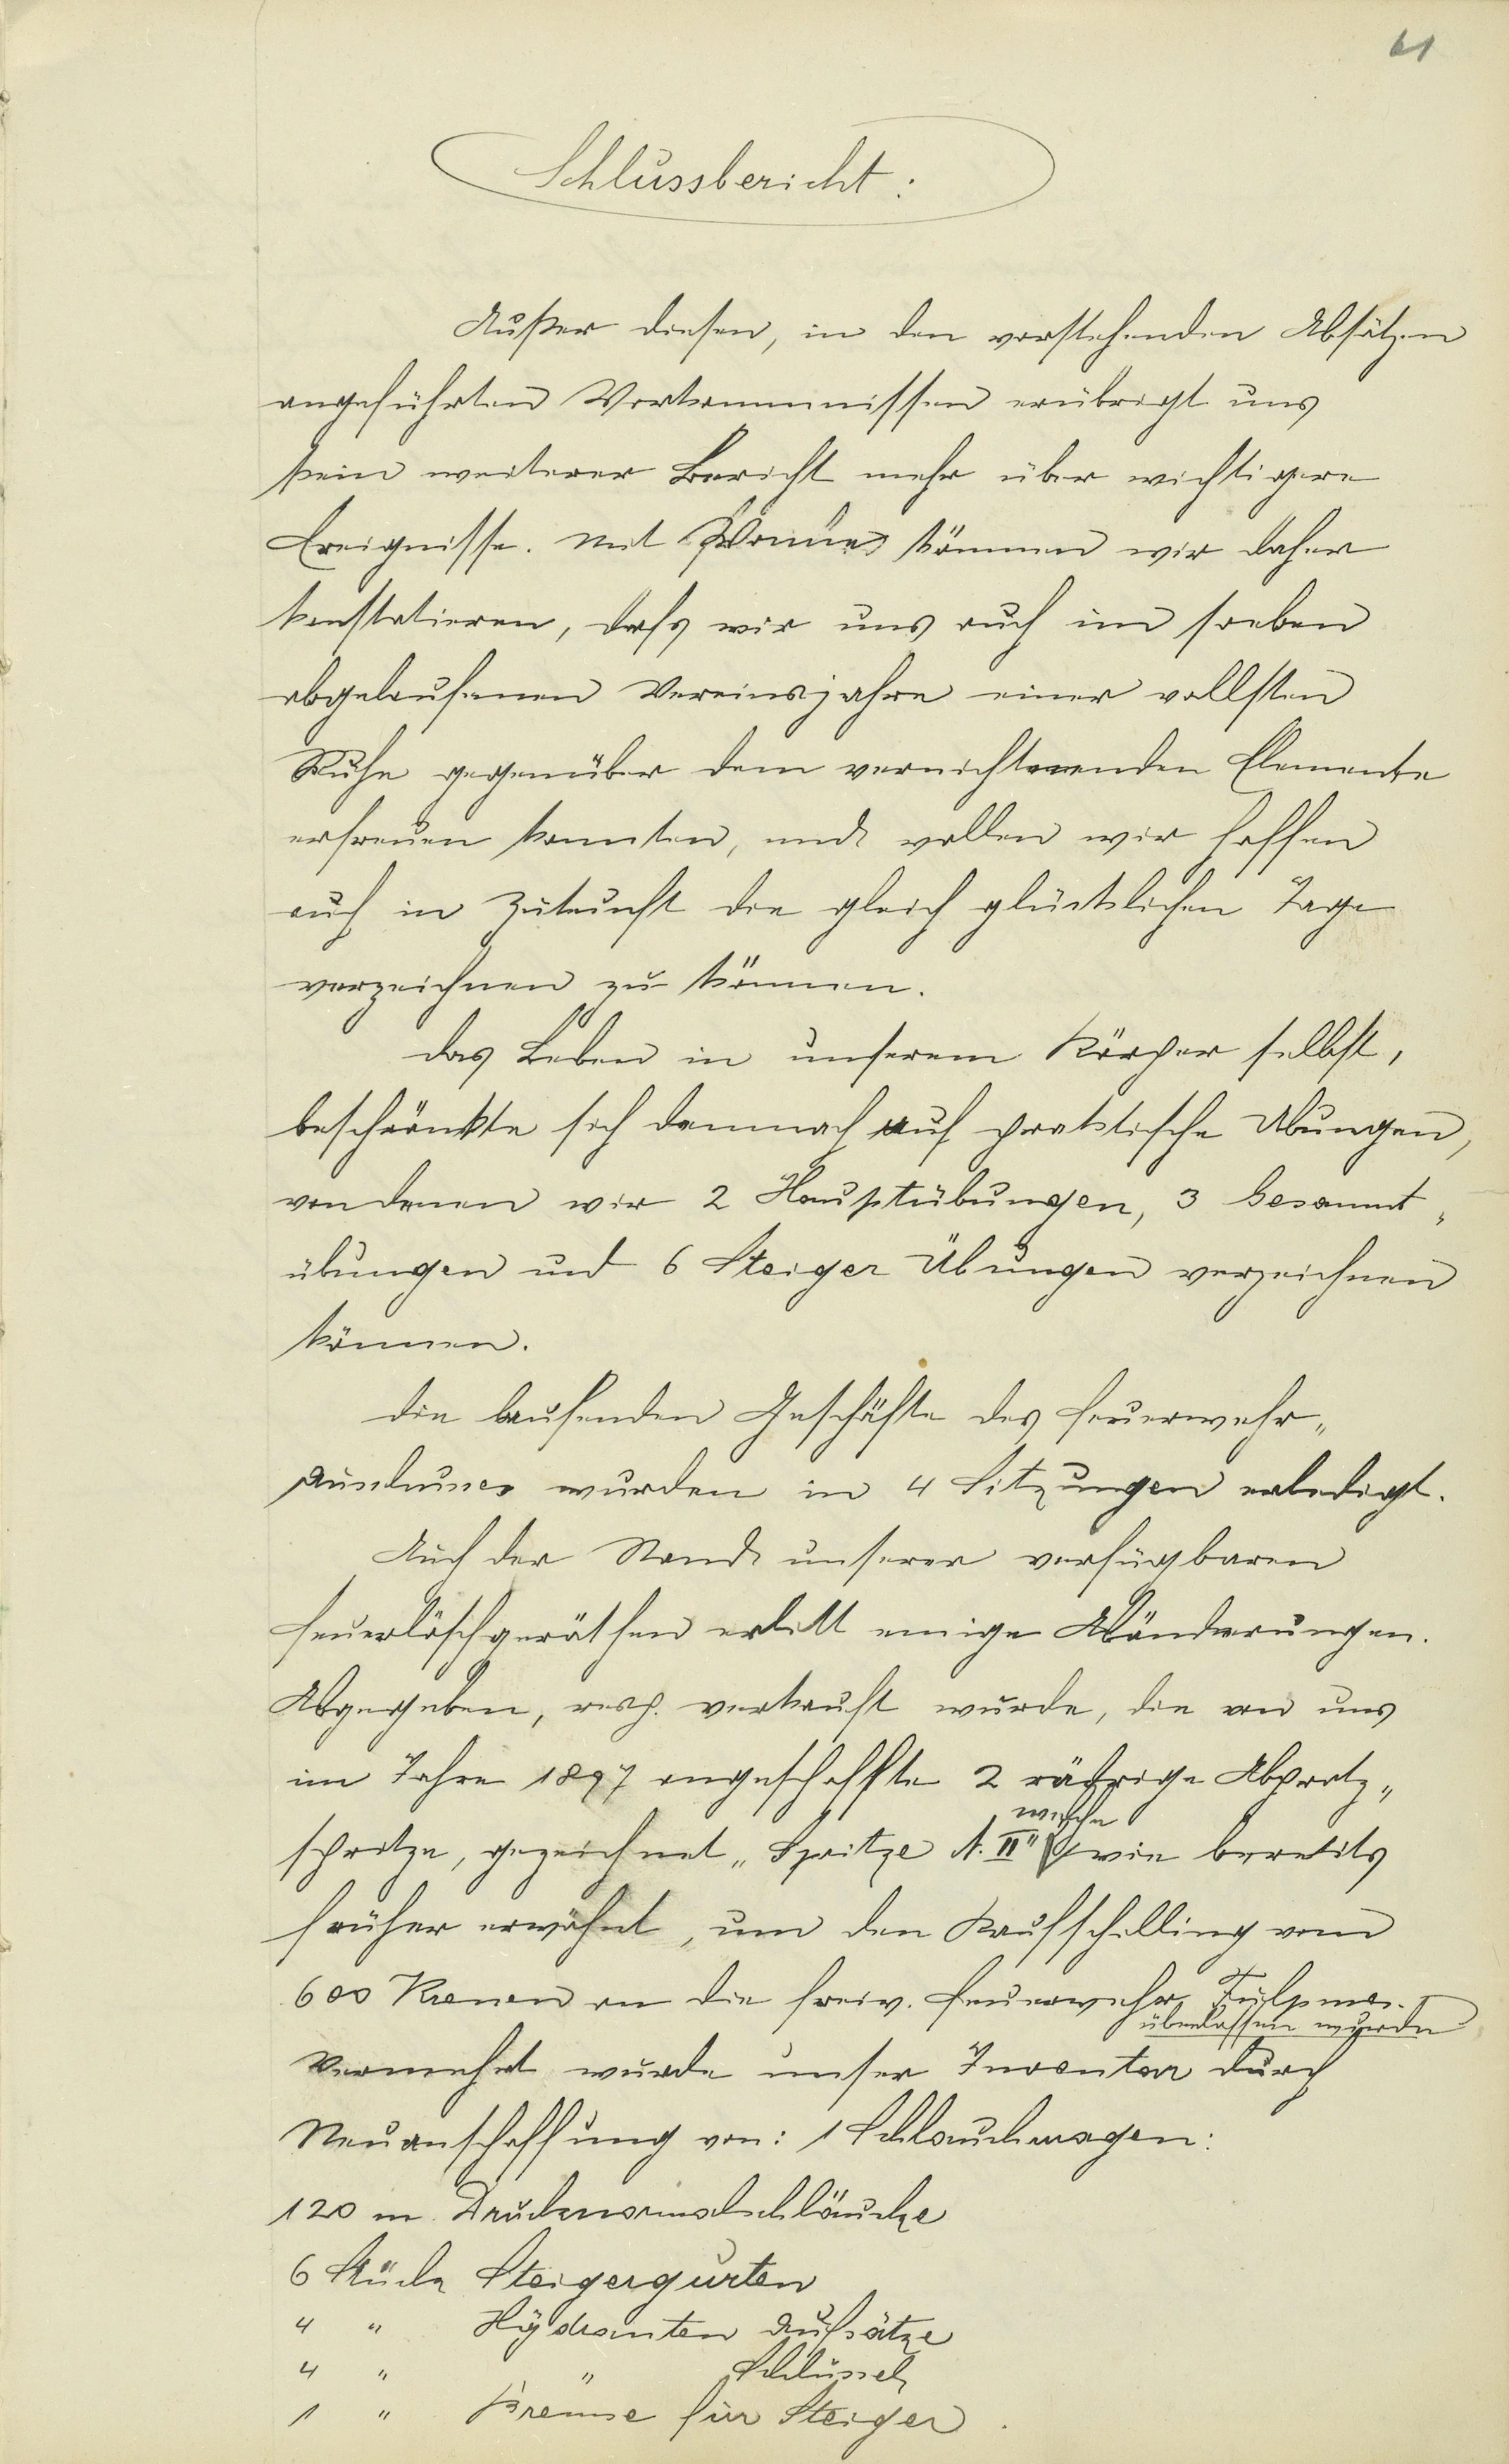 61
Schlussbericht:
Außer diesen, in den vorstehenden Absätzen
angeführten Vorkommnissen erübrigt uns
kein weiterer Bericht mehr über wichtigere
Ereignisse. Mit können wir daher
konstatieren, dass wir uns auch im soeben
abgelaufenen Vereinsjahre einer vollsten
Ruhe gegenüber dem vernichtenden Elemente
erfreuen konnten, und wollen wir hoffen
auch in Zukunft die gleich glücklichen Tage
verzeichnen zu können.
Das Leben in unserem Körper selbst,
beschränkte sich demnach auf praktische Übungen,
von denen wir 2 Hauptübungen, 3 Gesammt„
übungen und 6 Steiger Übungen verzeichnen
können.
Die laufenden Geschäfte des Feuerwehr„
wurden in 4 Sitzungen erledigt.
Auch der Stand unserer verfügbaren
Feuerlöschgeräthen erlitt einige Abänderungen.
Abgegeben, resp. verkauft wurde, die von uns
im Jahre 1897 angeschaffte 2 rädrige Abprotz„
spritze, gezeichnet „Spritze N. II" welche wie bereits
früher erwähnt, um den Kaufschilling vom
600 Kronen an die freiw. Feuerwehr Tulpmes.
überlassen wurde
Vermehrt wurde unser Inventar durch
Neuanschaffung von: 1 Schlauchwagen:
120 m Drucknormalschläuche
6 Stück Steigergurten
4 " Hydranten Aufsätze
4 " " Schlüssel
1 " Bremse für Steiger.